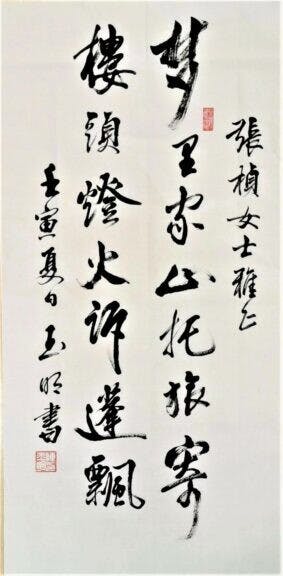 張楨女士雅正
梦里家山托旅寄
樓頭燈火訴蓬飄
壬寅夏日玉明書